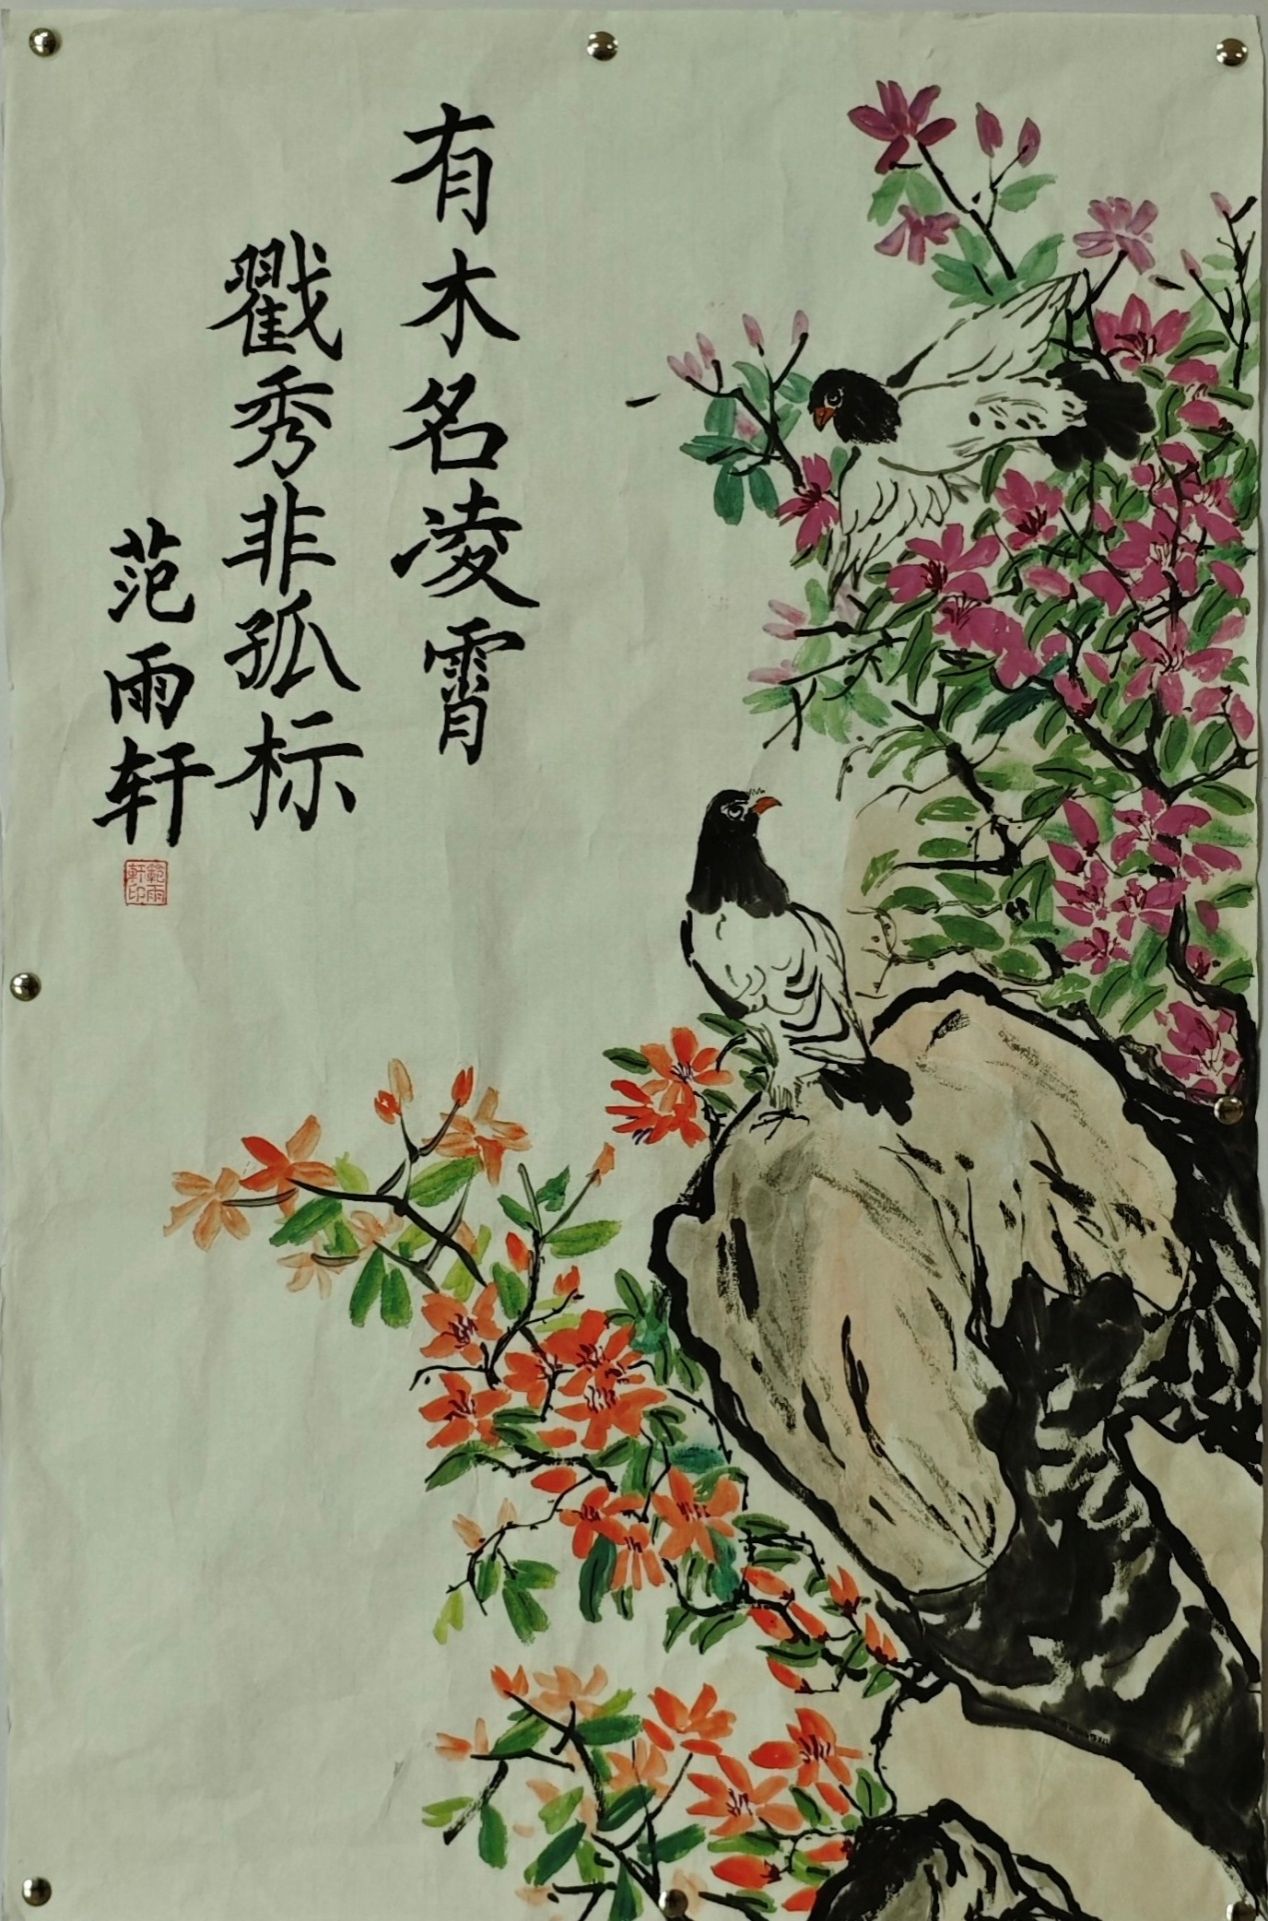 有木名凌霄
戳秀非孤标
范雨轩
範雨軒印